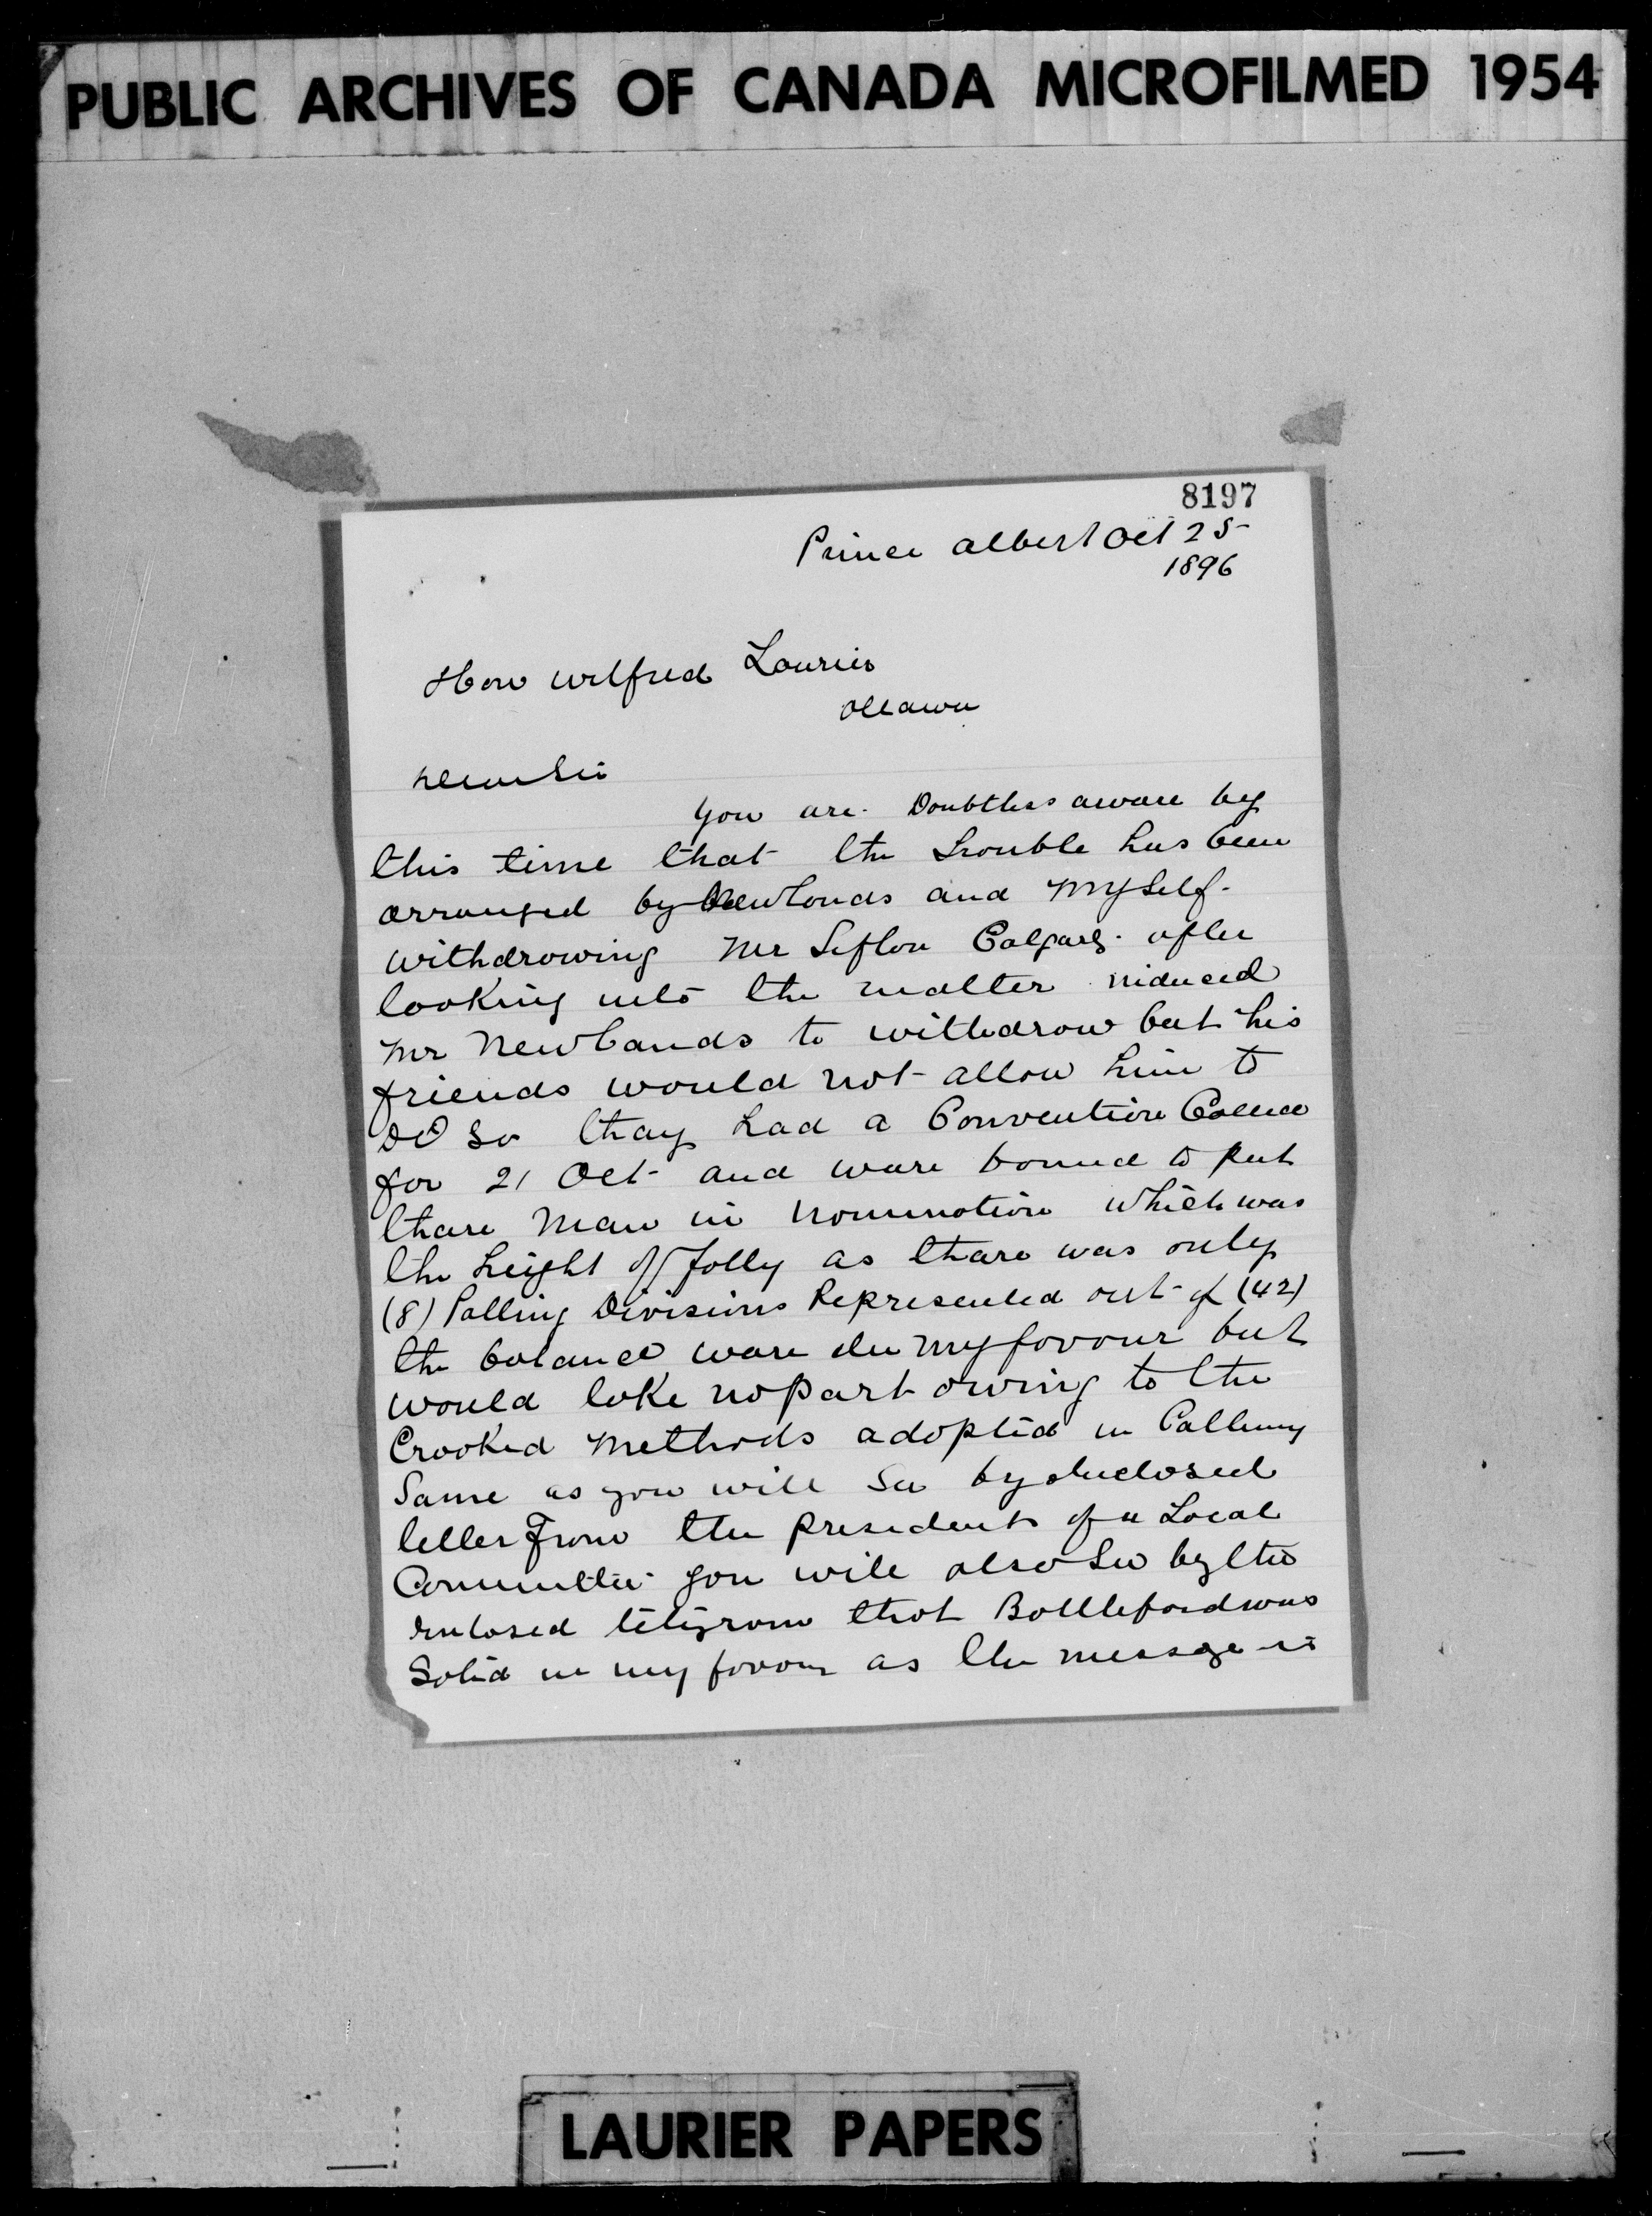 PUBLIC ARCHIVES OF CANADA MICROFILMED 1954
8197
Prince Albert Oct 25
1896
Hon Wilfred Laurier
Ottawa
Dear Sir
You are Doubtless aware by
this time that the trouble has been
arranged by Newlands and Myself
withdrawing Mr Sifton Calgary after
looking into the matter induced
Mr Newlands to withdraw but his
friends would not allow him to
DO So thay had a Convention Called
for 21 Oct and ware bound to put
thare Man in nomination which was
the height of folly as thare was only
(8) Polling Divisions Represented out of (42)
the balance ware in my favour but
would take no part owing to the
Crooked Methods adopted in Calling
Same as you will See by inclosed
letter From the president of a Local
Committee you will also See by the
enclosed telegram that Battleford was
Solid in my favour as the message is
LAURIER PAPERS